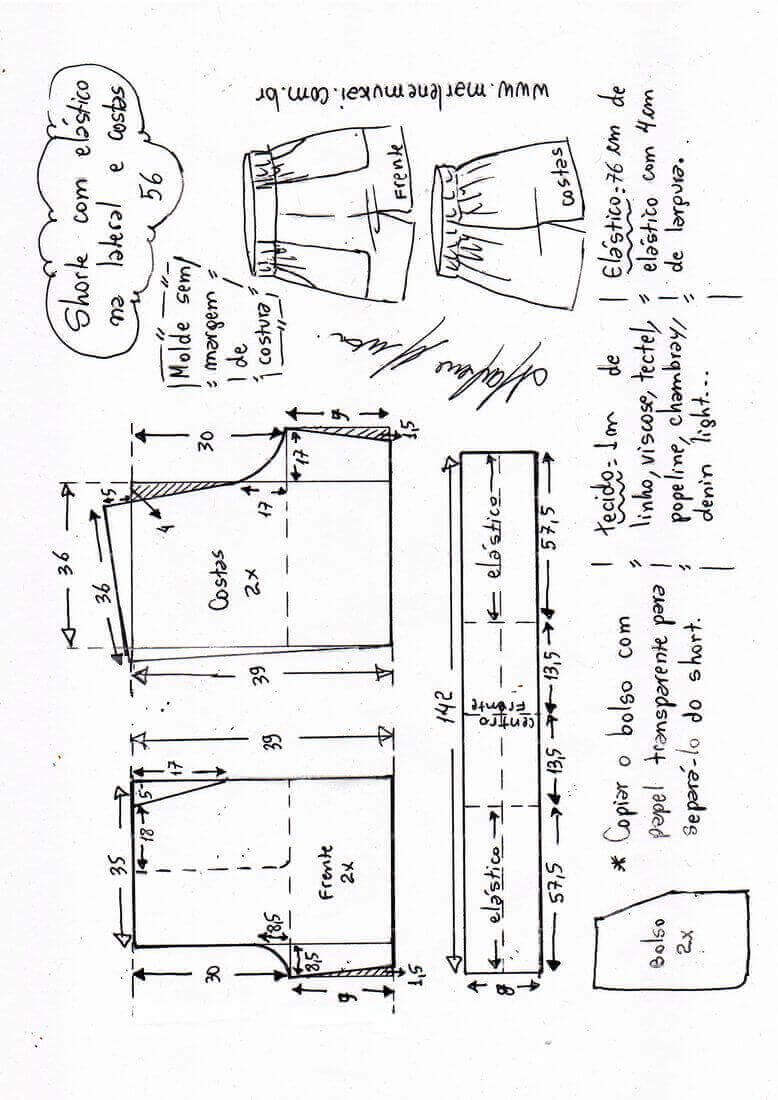 Shorte com elástico
na lateral e costas
56
www.marlenemukai.com.br
Frente
costas
Molde sem
margem
de
costura
Elástico: 76 cm de
elástico com 4 cm
de largura.
tecido = 1m de
linho, viscose, tectel,
popeline, chambray,
denin light...
* Copiar o bolso com
papel transparente para
separá-lo do short.
Bolso
2x
36
36
4,5
4
30
17
17
9
1,5
Costas
2x
39
39
35
5
17
18
Frente
2x
30
8,5
8,5
9
1,5
142
elástico
centro
Frente
elástico
57,5
13,5
13,5
57,5
8